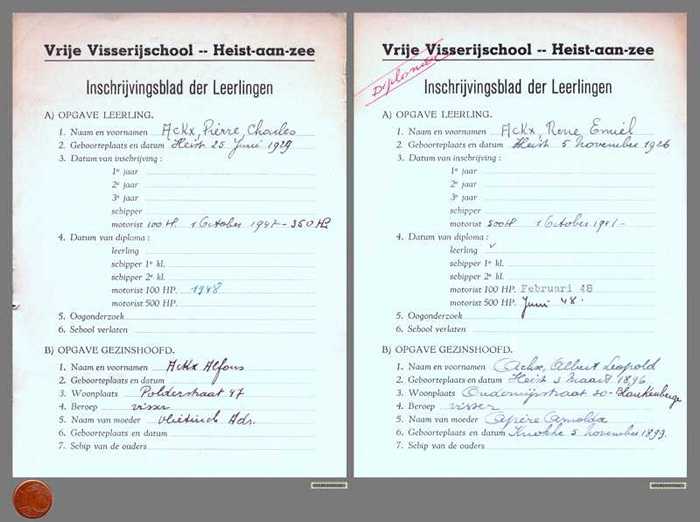 Vrije Visserijschool -- Heist-aan-zee
Inschrijvingsblad der Leerlingen
A) OPGAVE LEERLING.
1. Naam en voornamen Ackx, Pierre, Charles
2. Geboorteplaats en datum Heist 25 Juni 1929
3. Datum van inschrijving :
1e jaar
2e jaar
3e jaar
schipper
motorist 100 H.P. 1 October 1947 - 350 H.P.
4. Datum van diploma :
leerling
schipper 1e kl.
schipper 2e kl.
motorist 100 HP. 1948
motorist 500 HP.
5. Oogonderzoek
6. School verlaten
B) OPGAVE GEZINSHOOFD.
1. Naam en voornamen Ackx Alfons
2. Geboorteplaats en datum
3. Woonplaats Polderstraat 47
4. Beroep visser
5. Naam van moeder Vlietinck Adr.
6. Geboorteplaats en datum
7. Schip van de ouders
Vrije Visserijschool -- Heist-aan-zee
Diploma
Inschrijvingsblad der Leerlingen
A) OPGAVE LEERLING.
1. Naam en voornamen Ackx, René Emiel
2. Geboorteplaats en datum Heist 5 november 1926
3. Datum van inschrijving :
1e jaar
2e jaar
3e jaar
schipper
motorist 500 H. 1 October
4. Datum van diploma :
leerling
schipper 1e kl.
schipper 2e kl.
motorist 100 HP. Februari 48
motorist 500 HP. Juni 48.
5. Oogonderzoek
6. School verlaten
B) OPGAVE GEZINSHOOFD.
1. Naam en voornamen Ackx, Albert Leopold
2. Geboorteplaats en datum Heist 3 maart 1896
3. Woonplaats 20 - Blankenberge
4. Beroep visser
5. Naam van moeder
6. Geboorteplaats en datum Knokke 5 november 1899.
7. Schip van de ouders